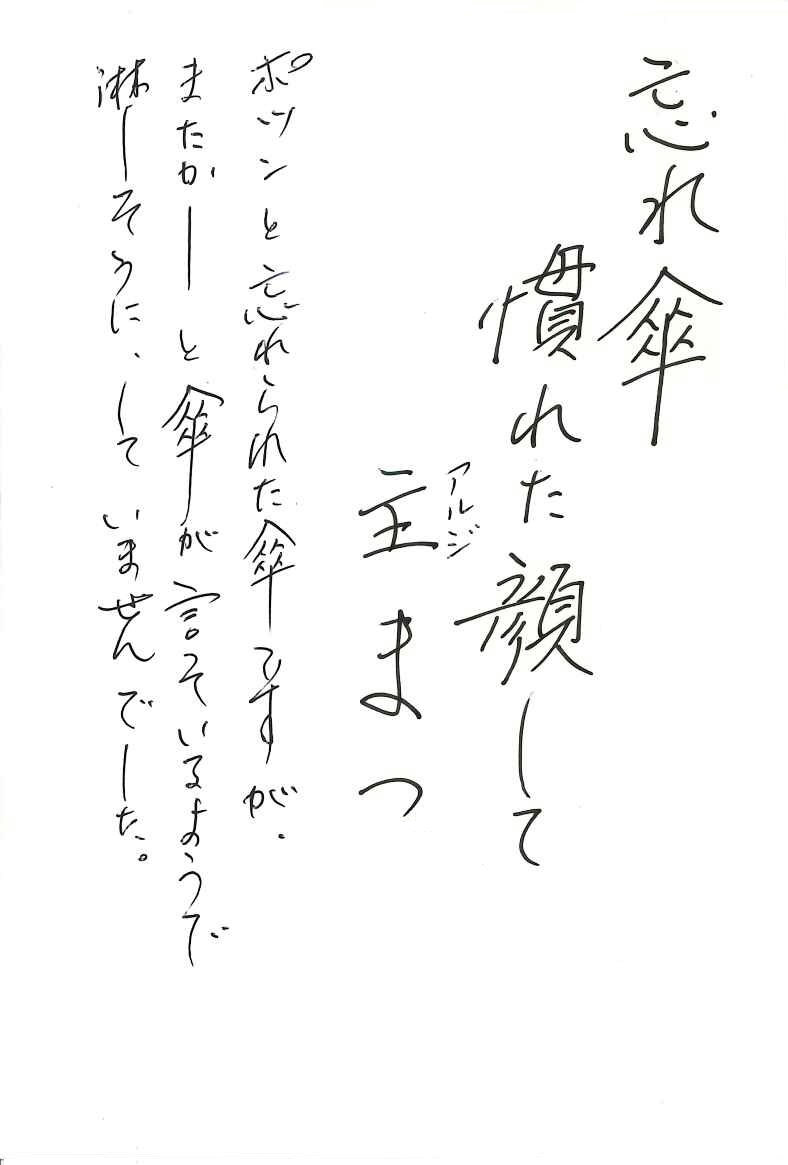 忘れ傘
慣れた顔して
主まつ
アルジ
ポツンと忘れられた傘ですが、
またか――と傘が言っているようで
淋しそうに、していませんでした。